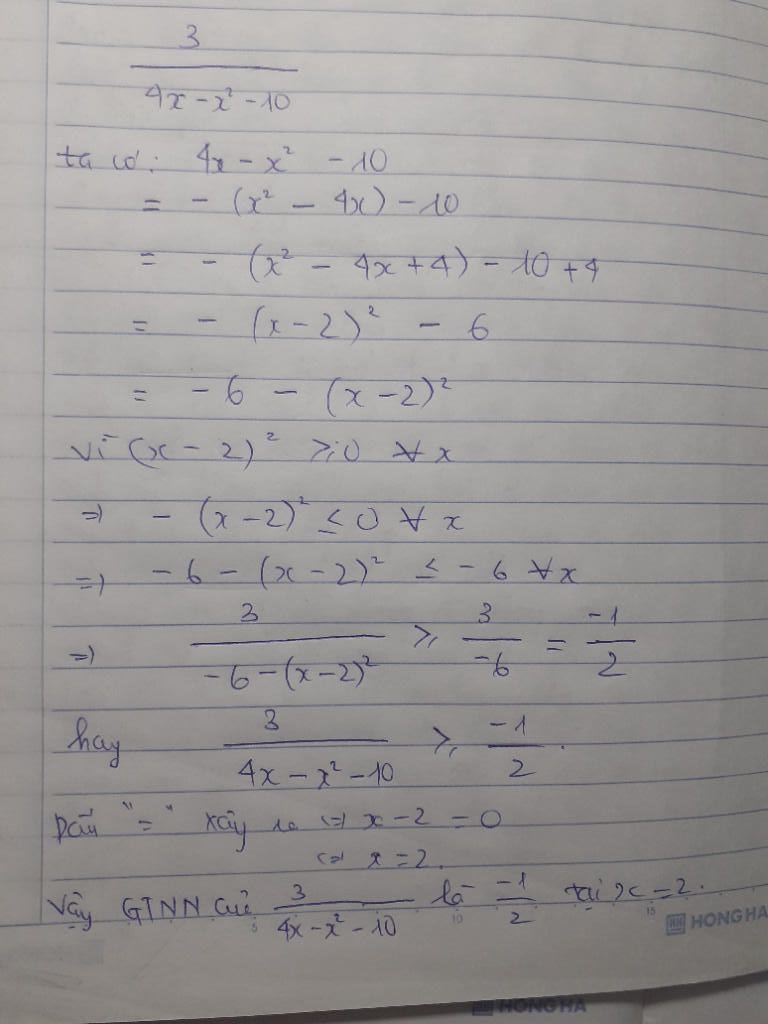 3
4x - x² - 10
ta có: 4x - x² - 10
= - (x² - 4x) - 10
= - (x² - 4x + 4) - 10 + 4
= - (x - 2)² - 6
= - 6 - (x - 2)²
vì (x - 2)² ⩾ 0 ∀ x
=) - (x - 2)² ≤ 0 ∀ x
=) - 6 - (x - 2)² ≤ - 6 ∀ x
=) 3 / (- 6 - (x - 2)²) ⩾ 3 / -6 = -1 / 2
hay 3 / (4x - x² - 10) ⩾ -1 / 2 .
Dấu "=" xảy ra (=) x - 2 = 0
(=) x = 2.
Vậy GTNN của 3 / (4x - x² - 10) là -1 / 2 tại x = 2.
5 10 15
HH HONG HA
HONG HA